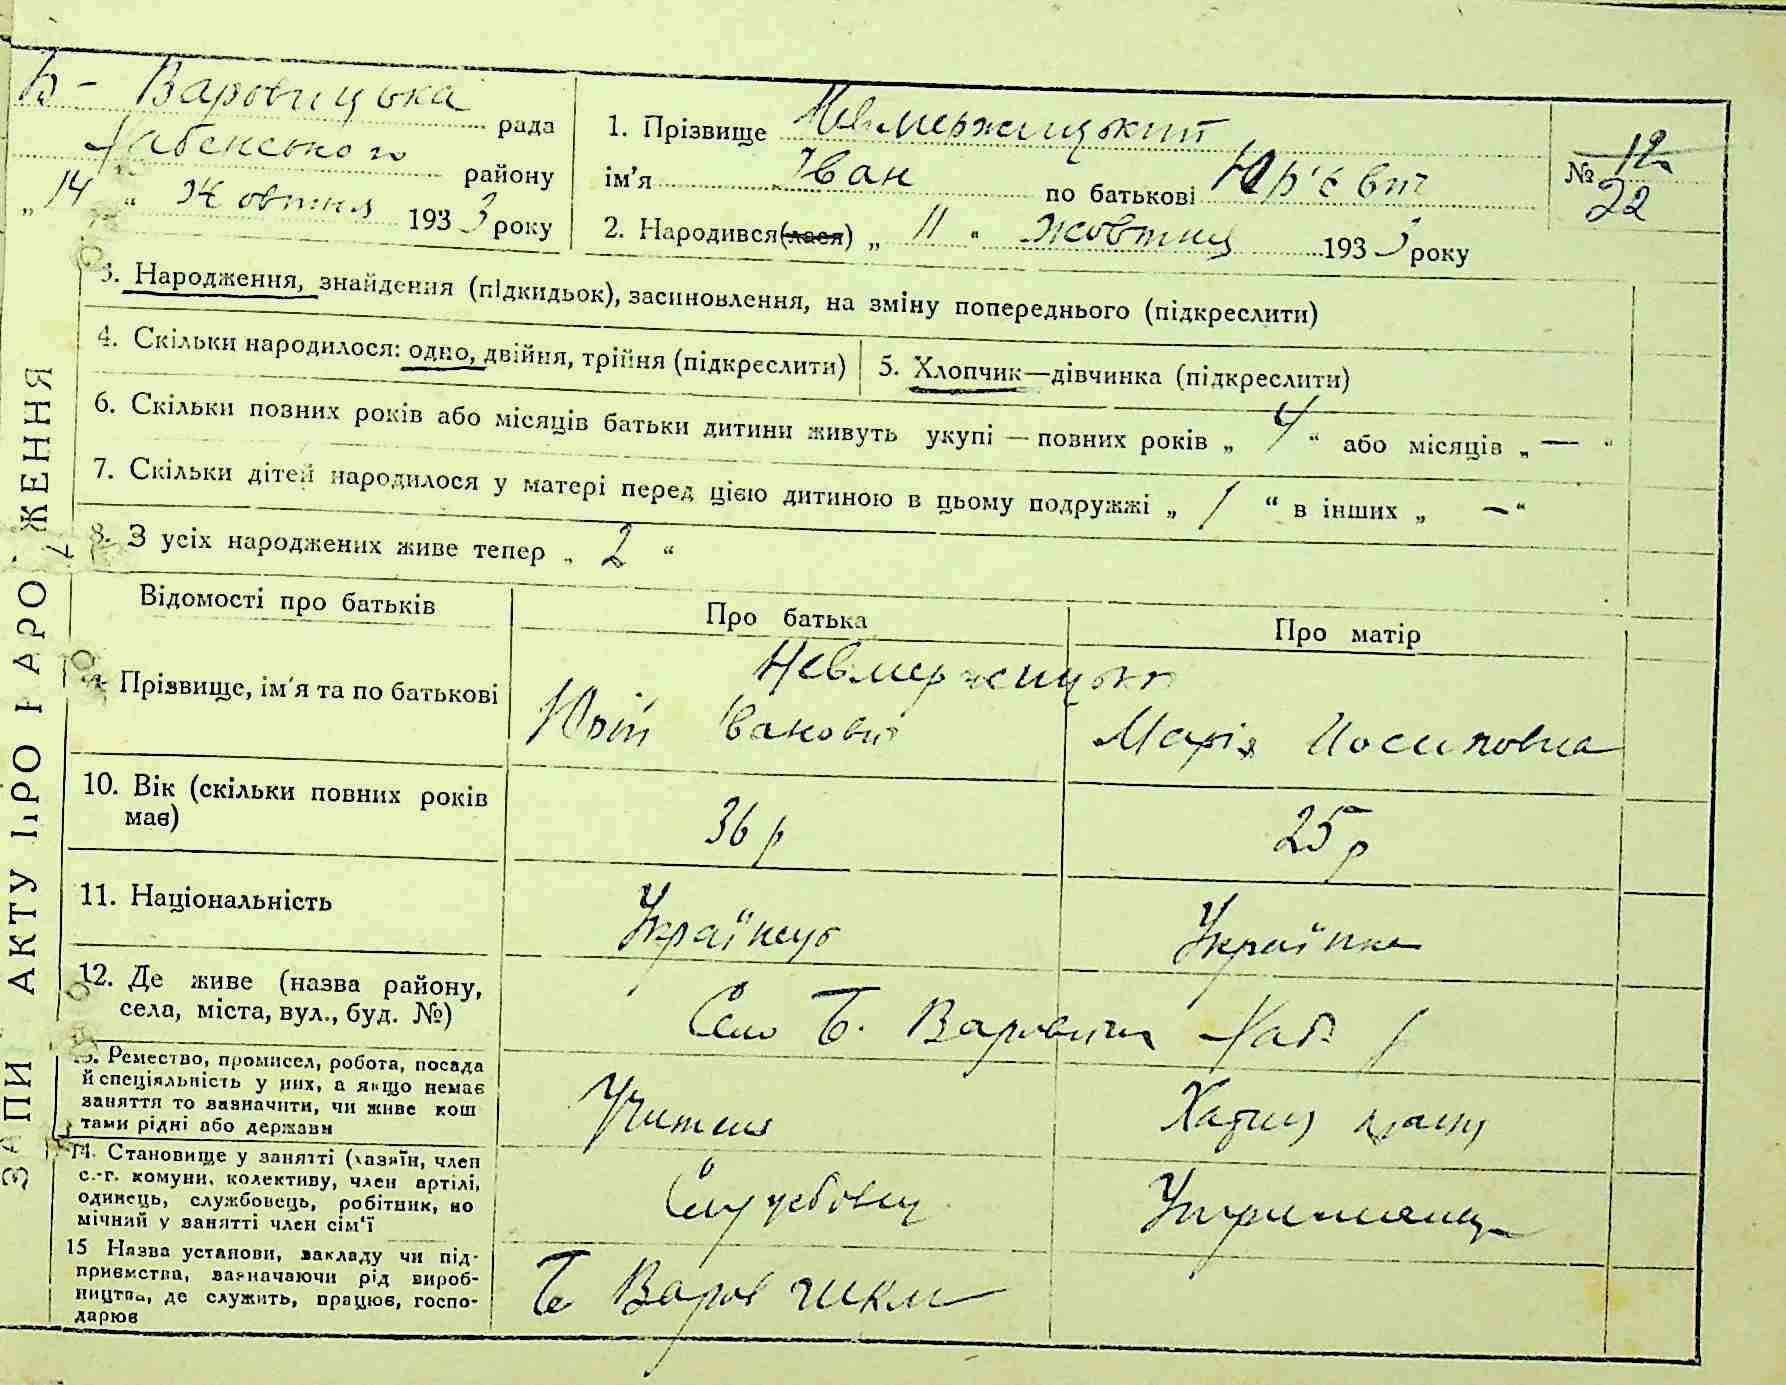 Б - Варовицька рада
Хабенського району
„ 14 “ Жовтня 1933 року
1. Прізвище Невмержицький
ім’я Іван по батькові Юр’євич
2. Народився(лася) „ 11 “ Жовтня 1933 року
№ 12
22
3. Народження, знайдення (підкидьок), засиновлення, на зміну попереднього (підкреслити)
4. Скільки народилося: одно, двійня, трійня (підкреслити)
5. Хлопчик—дівчинка (підкреслити)
6. Скільки повних років або місяців батьки дитини живуть укупі — повних років „ 4 “ або місяців „ — “
7. Скільки дітей народилося у матері перед цією дитиною в цьому подружжі „ 1 “ в інших „ — “
8. З усіх народжених живе тепер „ 2 “
Відомості про батьків
Про батька
Про матір
Прізвище, ім’я та по батькові
Невмержицькі
Юрій Іванович
Марія Иосиповна
10. Вік (скільки повних років
має)
36 р
25 р
11. Національність
Українець
Українка
12. Де живе (назва району,
села, міста, вул., буд. №)
Село Б. Варовичи Хаб. р
13. Ремество, промисел, робота, посада
й спеціяльність у них, а якщо немає
заняття то зазначити, чи живе кош
тами рідні або держави
Учитель
Хатня праця
14. Становище у занятті (хазяїн, член
с.-г. комуни, колективу, член артілі,
одинець, службовець, робітник, по
мічний у занятті член сім’ї
Службовец
Утриманец
15 Назва установи, закладу чи під-
приємства, зазначаючи рід вироб-
ництва, де служить, працює, госпо-
дарює
Б Варов
ЗАПИ АКТУ ПРО НАРО ЖЕННЯ